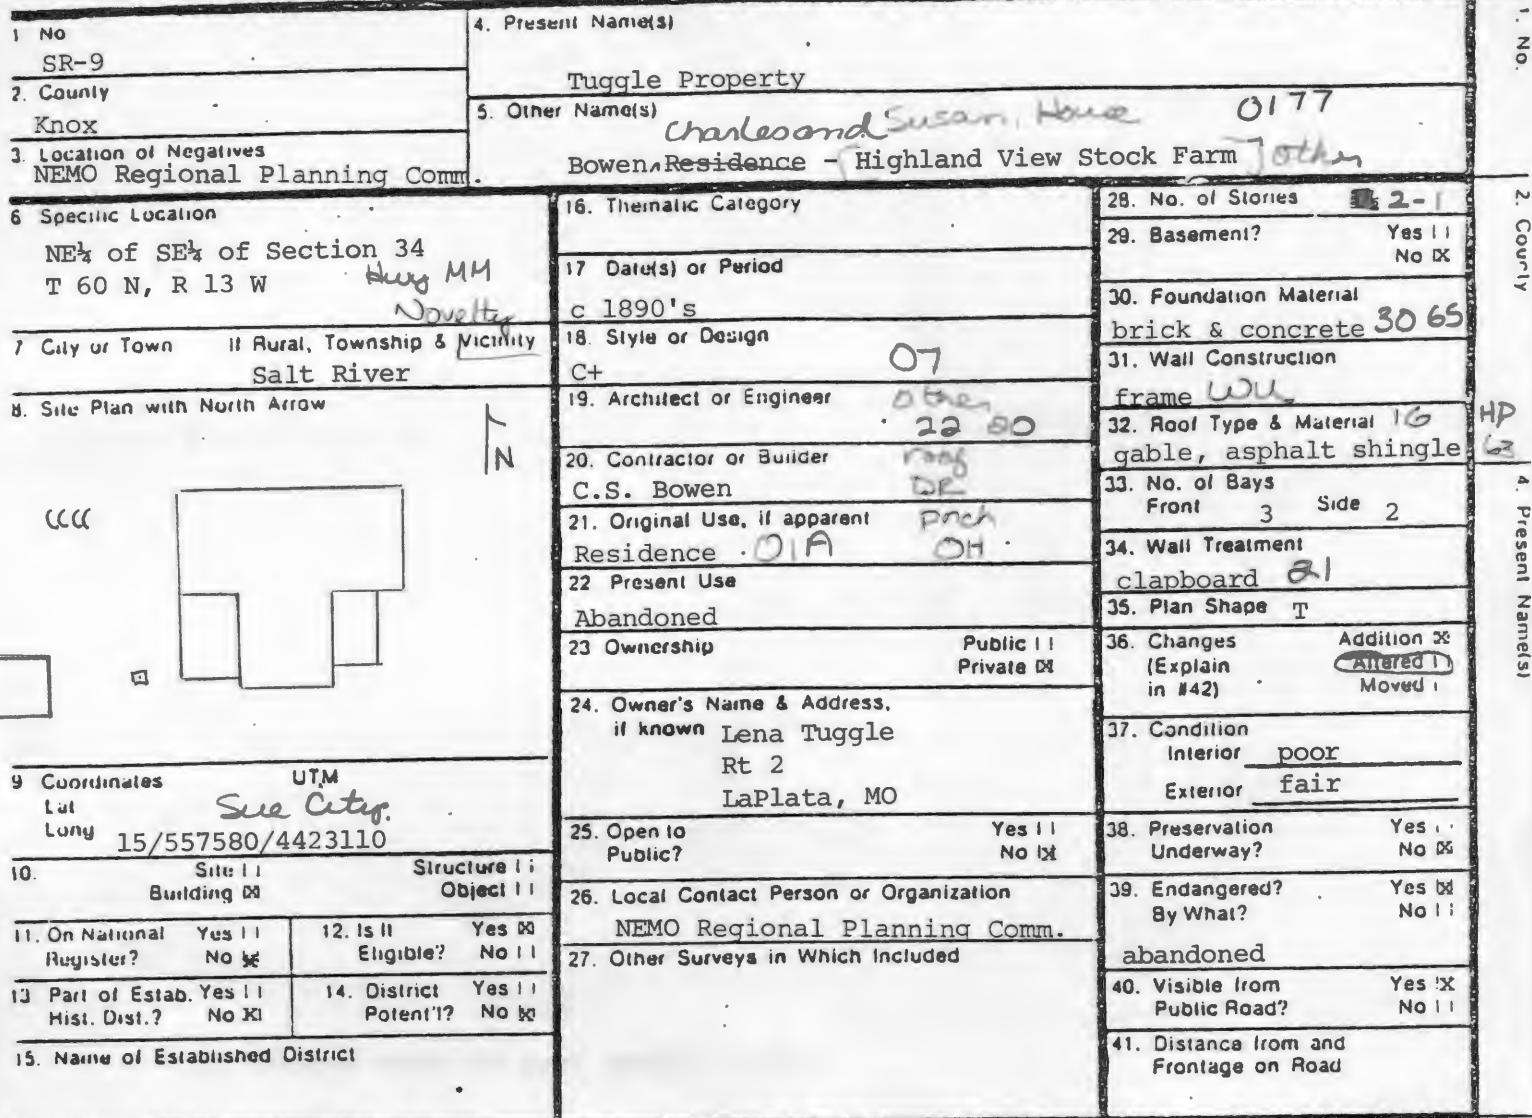 1 No
SR-9
2. County
Knox
3. Location of Negatives
NEMO Regional Planning Comm.
4. Present Name(s)
Tuggle Property
5. Other Name(s)
Charles and Susan, House 0177
Bowen Residence - Highland View Stock Farm ] other
6 Specific Location
NE¼ of SE¼ of Section 34
T 60 N, R 13 W
Hwy MM
Novelty
7 City or Town If Rural, Township & Vicinity
Salt River
8. Site Plan with North Arrow
N
9 Coordinates UTM
Lat
Long
Sue City.
15/557580/4423110
10. Site [ ] Structure [ ]
Building [X] Object [ ]
11. On National Register? Yes [ ] No [X]
12. Is It Eligible? Yes [X] No [ ]
13 Part of Estab. Hist. Dist.? Yes [ ] No [X]
14. District Potent'l? Yes [ ] No [X]
15. Name of Established District
16. Thematic Category
17 Date(s) or Period
c 1890's
18. Style or Design
C+ 07
19. Architect or Engineer
other
22 80
20. Contractor or Builder
C.S. Bowen
roof
DR
21. Original Use, if apparent
Residence 01A
porch
OH
22 Present Use
Abandoned
23 Ownership Public [ ]
Private [X]
24. Owner's Name & Address,
if known Lena Tuggle
Rt 2
LaPlata, MO
25. Open to Public? Yes [ ] No [X]
26. Local Contact Person or Organization
NEMO Regional Planning Comm.
27. Other Surveys in Which Included
28. No. of Stories 2-1
29. Basement? Yes [ ]
No [X]
30. Foundation Material
brick & concrete 30 65
31. Wall Construction
frame
32. Roof Type & Material 1G
gable, asphalt shingle
HP
63
33. No. of Bays
Front 3 Side 2
34. Wall Treatment
clapboard 21
35. Plan Shape T
36. Changes Addition [X]
(Explain Altered [ ]
in #42) Moved [ ]
37. Condition
Interior poor
Exterior fair
38. Preservation Underway? Yes [ ] No [X]
39. Endangered? Yes [X]
By What? No [ ]
abandoned
40. Visible from Public Road? Yes [X] No [ ]
41. Distance from and
Frontage on Road
1. No.
2. County
4. Present Name(s)